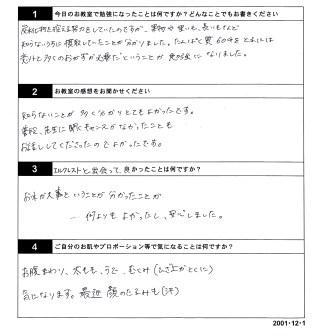 1 今日のお教室で勉強になったことは何ですか？どんなことでもお書きください
知らないうちに摂取していたことが分かりました。たんぱく質60gをとるには
意外と多くのおかずが必要だということが勉強になりました。
2 お教室の感想をお聞かせください
知らないことが多く分かりとてもよかったです。
普段、先生に聞くチャンスがなかったことも
お話ししてくださったのでよかったです。
3 エルクレストと出会って、良かったことは何ですか？
お水が大事ということが分かったことが
何よりもよかったし、安心しました。
4 ご自分のお肌やプロポーション等で気になることは何ですか？
お腹まわり、太もも、うで、むくみ（ひざ上がとくに）
気になります。最近 顔のたるみも（汗）
2001・12・1